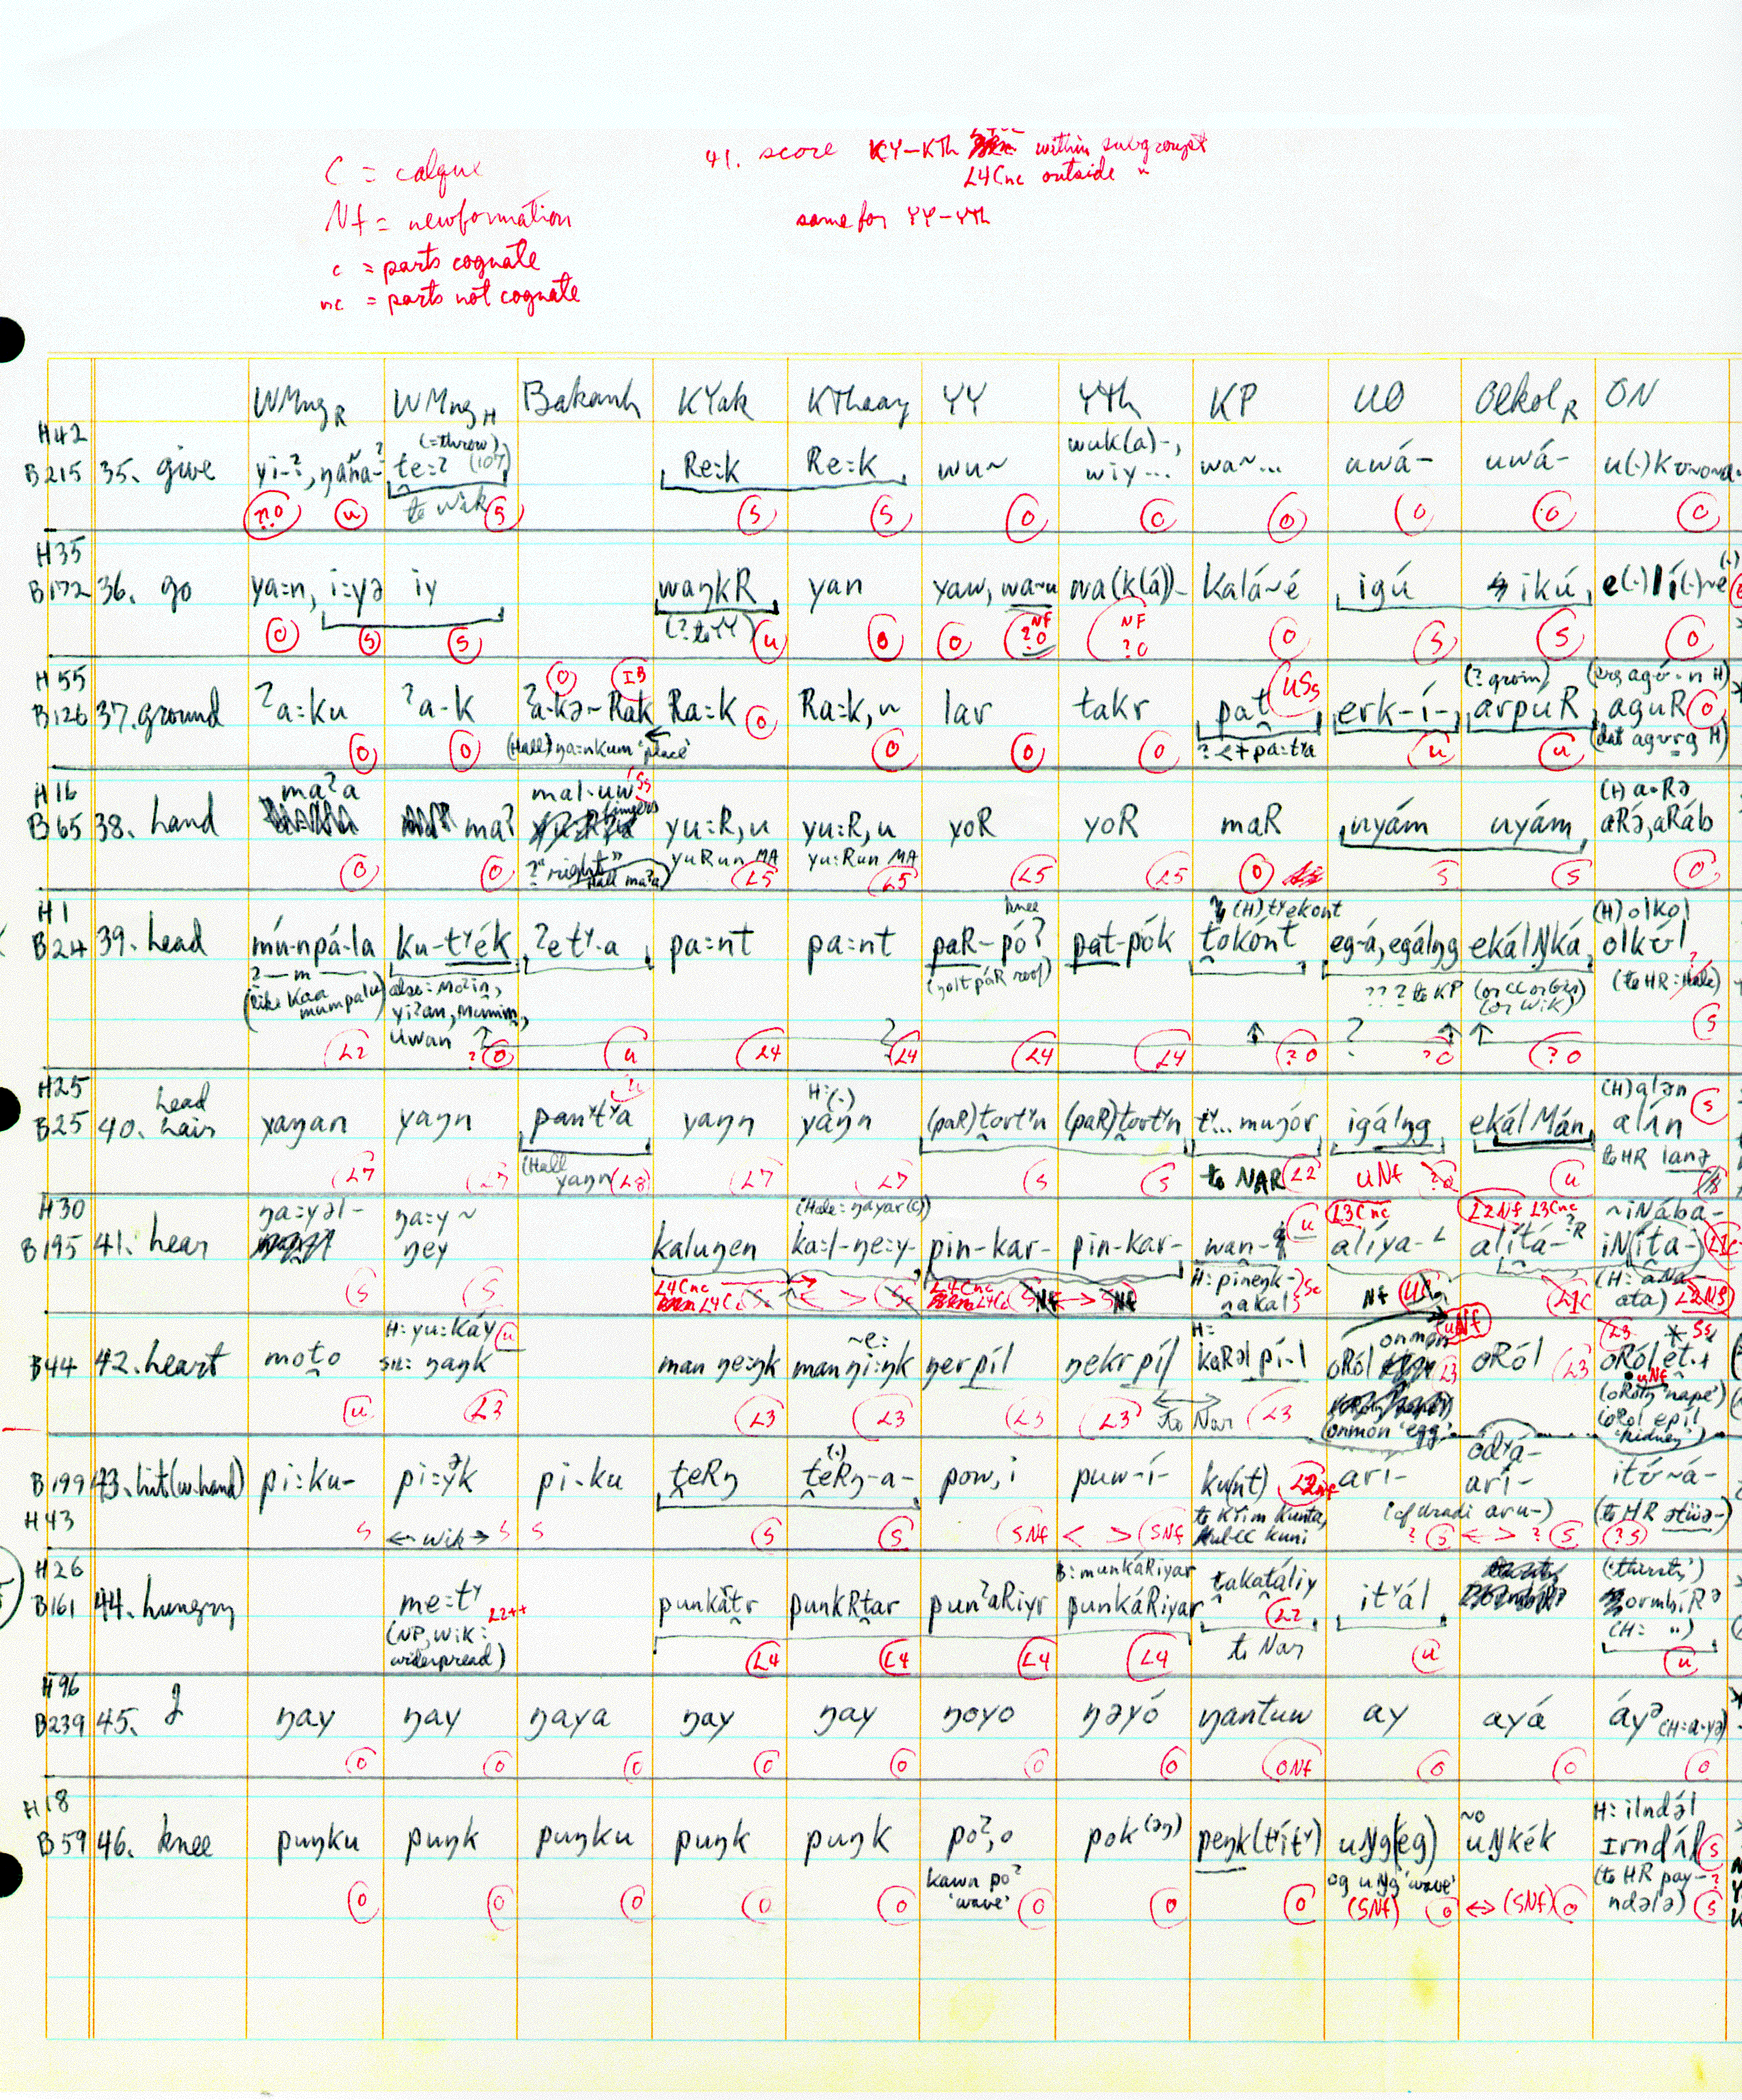 C = calque
Nf = newformation
c = parts cognate
nc = parts not cognate
41. score KY-KTh within subgroups
L4Cnc outside "
same for YY-YTh
WMng R WMng H Bakanh KYak KThaay YY YTh KP UO Olkol R ON
H42 (=throw) wuk(a)-,
B215 35. give yi-ʔ, te:ʔ (107) Re:k Re:k wu~ wiy... wa~... uwá- uwá-
??0 u to Wik S S S 0 0 0 0 0 0
H35
B172 36. go ya:n, i:yə iy waŋkR yan yaw, wa~u wa(k(á))- kalá~é igú ikú e(.)lí(.)~é
(? to YY)
0 S S u 0 0 Nf ?0 NF ?0 0 S S 0
H55 0 IB USs (? groin) (erg agú-n H)
B126 37. ground ʔa:ku ʔa-k ʔa-kə~Rak Ra:k 0 Ra:k, n lar takr pat erk-í- arpuR aguR 0
0 0 (Hall) ŋa:nkum 'place' 0 0 0 ? <+ pa:tʸa u u (dat agurg H)
H16 maʔa mal-uw Ss fingers (H) a·Rə
B65 38. hand maʔ yu:R, u yu:R, u yoR yoR maR uŋyám uŋyám aRə, aRáb
?"right" Hall maʔa yuRun MA yu:Run MA
0 0 L5 L5 L5 L5 0 S S 0
H1 knee (H) tʸekont (H) olkol
B24 39. head mú-npá-la ku-tʸék ʔetʸ-a pa:nt pa:nt paR-póʔ pat-pók tokónt eg-á, egálŋg ekálŊká olkúl
(like Kaa mumpala) also: Moʔin, yiʔan, mumim, uwan (yolt páR roof) ??? to KP (or CC or Gzn) (or Wik) (to HR: Hale)
L2 ?0 u L4 L4 L4 L4 ?0 ? ?0 ?0 S
H25 head u H:(.) (H) alən S
B25 40. hair yaŋan yaŋn panʸtʸa yaŋn yaŋn (paR)tortʸn (paR)tortʸn tʸ... muŋór igálŋg ekálMán alán
(Hall yaŋn L8) to NAR L2 uNf ?0 to HR lanə
L7 L7 L7 L7 S S u
H30 ŋa:yəl- ŋa:y~ (Hale: ŋayar(c)) u L3Cnc L2Nf L3Cnc ~iNába-
B195 41. hear ŋey kaluŋen ka:l-ŋe:y- pin-kar- pin-kar- wan- alíya- alítá- iN(íta-) L1c
S S L4Cnc L4Cnc H: pineŋk- ŋakal Sc Nf L1c (H: aNa-ata) L2Nf
H: yu:Káy u ~e: H= onmon uNf L3 * Ss
B44 42. heart moto SIL: ŋaŋk man ŋe:ŋk man ŋi:ŋk ŋerpíl ŋekr píl kaRəl pí-l oRól L3 oRól L3 oRól ét.
u L3 L3 L3 L3 L3 to Nar L3 (onmon 'egg') (oRoŋ 'nape') (oRol epil 'kidney')
B199 43. hit (w. hand) pi:ku- pi:ʸk pi-ku teRŋ teRŋ-a- pow, i puw-í- ku(nt) L2nf arí- odʸá- arí- itú~á-
H43 S <- Wik -> S S S S SNf < > SNf to Krim kunta, kuni (cf Uradi aru-) ? S <-> ? S (to HR ətüə-) (?S)
H26 B: munkáRiyar (thirsty)
B161 44. hungry me:tʸ L2++ punkátr punkRtar punʔaRiyr punkáRiyar takatáliy L2 itʸál ormbíRə
(NP, Wik: widespread) to Nar (H: ")
L4 L4 L4 L4 u u
H96
B239 45. I ŋay ŋay ŋaya ŋay ŋay ŋoyo ŋəyó ŋantuw ay ayá áyə (H:a·yə)
0 0 0 0 0 0 0 0Nf 0 0 0
H18 ~o H: ilndəl
B59 46. knee puŋku puŋk puŋku puŋk puŋk poʔ, o pok(əŋ) peŋk(tʸítʸ) uŊg(eg) uŊkék Irndál S
kawn poʔ 'wave' og uŊg 'wave' (to HR pay-ndələ) S
0 0 0 0 0 0 0 0 (SNf) 0 <-> (SNf) 0